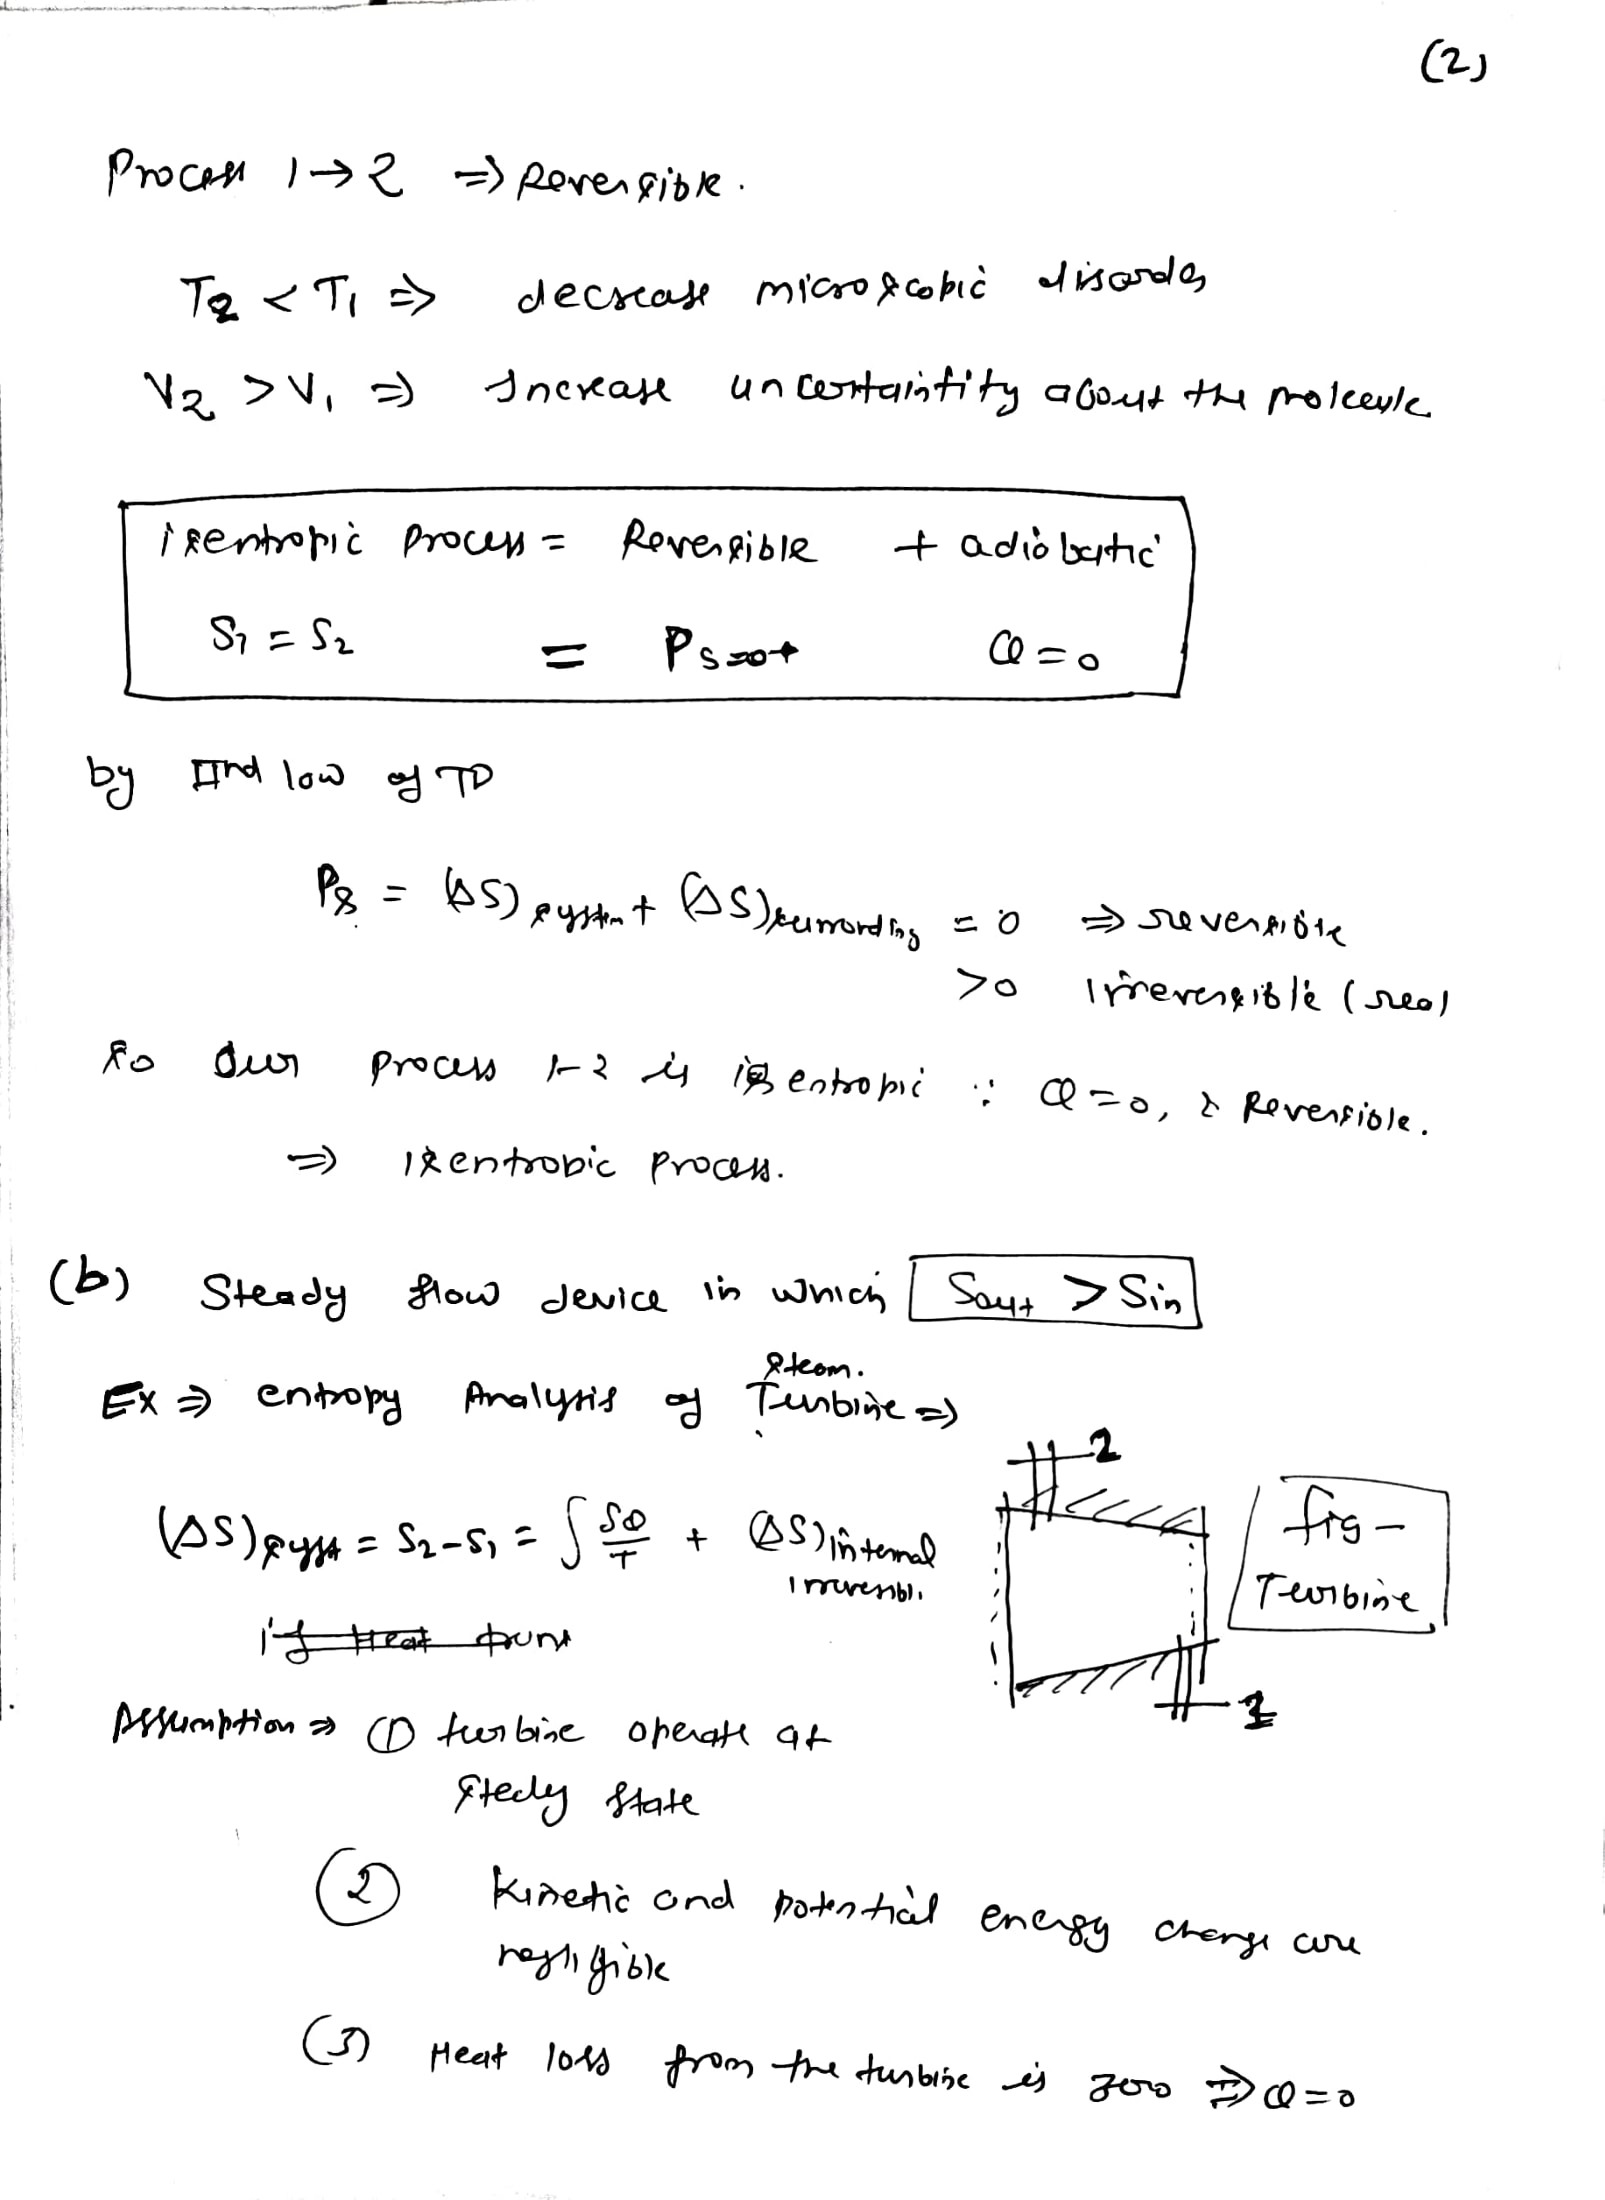 (2)
Process 1→2 ⇒ Reversible.
T2 < T1 ⇒ decrease microscopic disorder
V2 > V1 ⇒ Increase uncertaintity about the molecule
isentropic process = Reversible + adiobatic
S1 = S2 = Ps=0 + Q=0
by IInd low of TD
Ps = (ΔS)system + (ΔS)surrounding = 0 ⇒ reversible
>0 irreversible (real
so our process 1-2 is isentropic ∵ Q=0, & Reversible.
⇒ isentropic process.
(b) Steady flow device in which Sout > Sin
steam.
Ex ⇒ entropy Analysis of Turbine ⇒
2
(ΔS)syst = S2-S1 = ∫ δQ/T + (ΔS)internal
irreversibl.
fig-
Turbine
if Heat
Assumption ⇒ (1) turbine operate at
stedy state
(2) Kinetic and potential energy change are
negligible
(3) Heat loss from the turbine is zero ⇒ Q=0